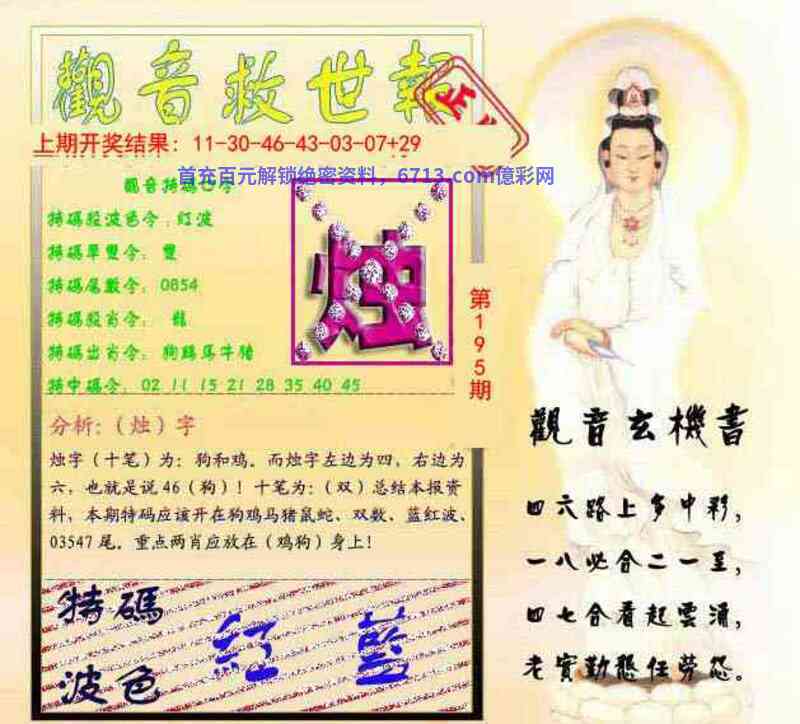 觀音救世報
上期开奖结果：11-30-46-43-03-07+29
首充百元解锁绝密资料，6713.com億彩网
特碼殺波色令：红波
特碼單雙令：雙
特碼尾數令：0854
特碼殺肖令：龍
特碼出肖令：狗鷄馬牛猪
特中碼令：02 11 15 21 28 35 40 45
烛
第195期
分析:（烛）字
烛字（十笔）为：狗和鸡。而烛字左边为四，右边为
六，也就是说46（狗）！十笔为:（双）总结本报资
料，本期特码应该开在狗鸡马猪鼠蛇、双数、蓝红波、
03547尾。重点两肖应放在（鸡狗）身上！
特碼
波色
紅 藍
觀音玄機書
四六路上多中彩，
一八必合二一至，
四七合看起雲涌，
老實勤懇任勞怨。